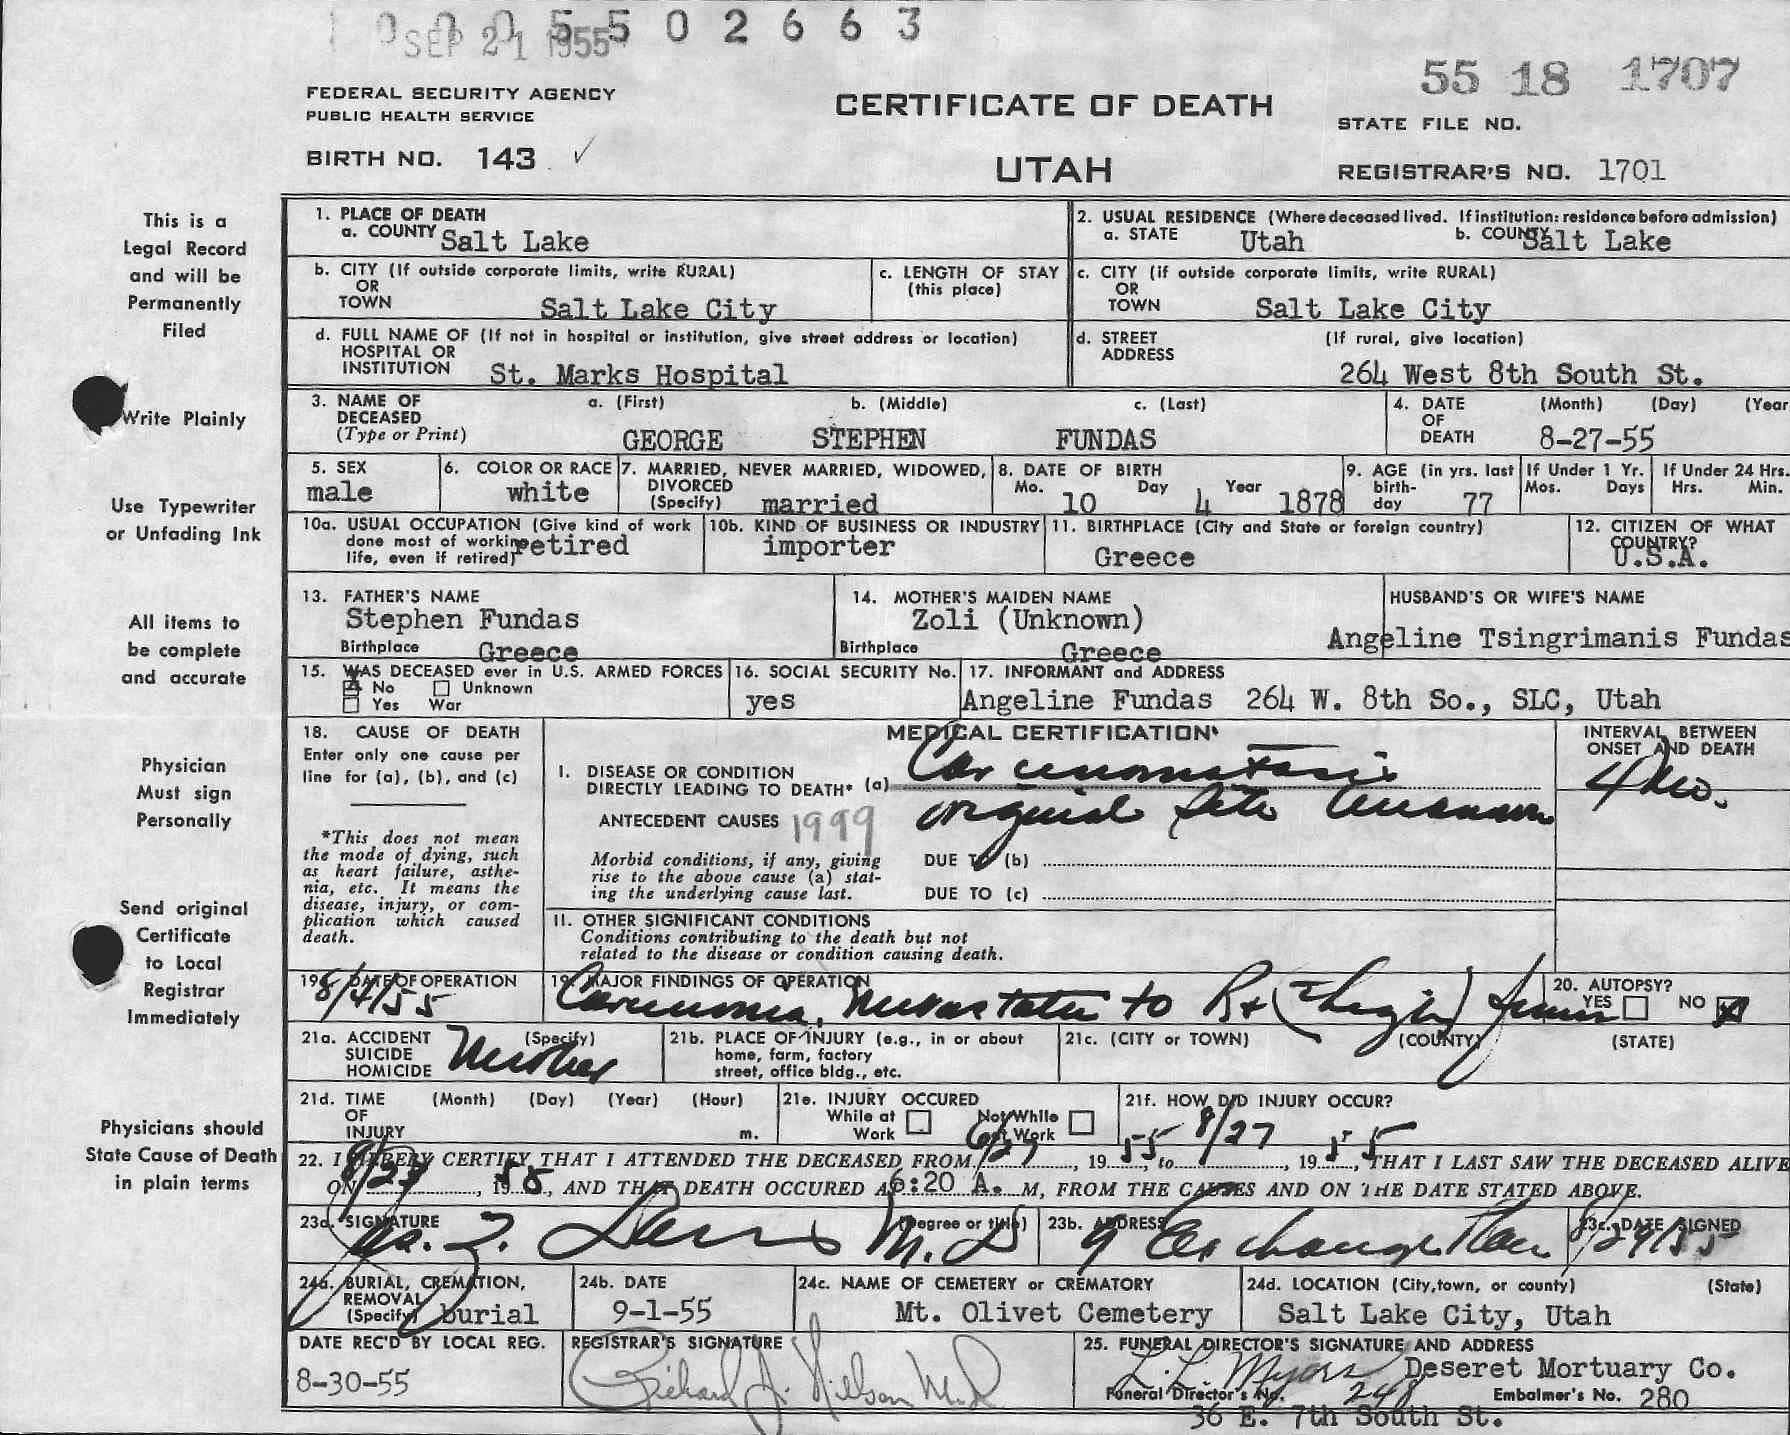 0 0 0 5 5 0 2 6 6 3
SEP 21 1955
55 18 1707
FEDERAL SECURITY AGENCY
PUBLIC HEALTH SERVICE
CERTIFICATE OF DEATH
STATE FILE NO.
BIRTH NO. 143 ✓
UTAH
REGISTRAR'S NO. 1701
This is a
Legal Record
and will be
Permanently
Filed
Write Plainly
Use Typewriter
or Unfading Ink
All items to
be complete
and accurate
Physician
Must sign
Personally
Send original
Certificate
to Local
Registrar
Immediately
Physicians should
State Cause of Death
in plain terms
1. PLACE OF DEATH
a. COUNTY Salt Lake
2. USUAL RESIDENCE (Where deceased lived. If institution: residence before admission)
a. STATE Utah b. COUNTY Salt Lake
b. CITY (If outside corporate limits, write RURAL)
OR
TOWN Salt Lake City
c. LENGTH OF STAY
(this place)
c. CITY (if outside corporate limits, write RURAL)
OR
TOWN Salt Lake City
d. FULL NAME OF (If not in hospital or institution, give street address or location)
HOSPITAL OR
INSTITUTION St. Marks Hospital
d. STREET (If rural, give location)
ADDRESS
264 West 8th South St.
3. NAME OF a. (First) b. (Middle) c. (Last)
DECEASED
(Type or Print) GEORGE STEPHEN FUNDAS
4. DATE (Month) (Day) (Year
OF
DEATH 8-27-55
5. SEX
male
6. COLOR OR RACE
white
7. MARRIED, NEVER MARRIED, WIDOWED,
DIVORCED
(Specify) married
8. DATE OF BIRTH
Mo. 10 Day 4 Year 1878
9. AGE (in yrs. last
birth-
day 77
If Under 1 Yr.
Mos. Days
If Under 24 Hrs.
Hrs. Min.
10a. USUAL OCCUPATION (Give kind of work
done most of working retired
life, even if retired)
10b. KIND OF BUSINESS OR INDUSTRY
importer
11. BIRTHPLACE (City and State or foreign country)
Greece
12. CITIZEN OF WHAT
COUNTRY?
U.S.A.
13. FATHER'S NAME
Stephen Fundas
Birthplace Greece
14. MOTHER'S MAIDEN NAME
Zoli (Unknown)
Birthplace Greece
HUSBAND'S OR WIFE'S NAME
Angeline Tsingrimanis Fundas
15. WAS DECEASED ever in U.S. ARMED FORCES
X No Unknown
Yes War
16. SOCIAL SECURITY No.
yes
17. INFORMANT and ADDRESS
Angeline Fundas 264 W. 8th So., SLC, Utah
18. CAUSE OF DEATH
Enter only one cause per
line for (a), (b), and (c)
*This does not mean
the mode of dying, such
as heart failure, asthe-
nia, etc. It means the
disease, injury, or com-
plication which caused
death.
MEDICAL CERTIFICATION
I. DISEASE OR CONDITION
DIRECTLY LEADING TO DEATH* (a) Carcinomatosis
original site unknown
ANTECEDENT CAUSES 1999
Morbid conditions, if any, giving
rise to the above cause (a) stat-
ing the underlying cause last.
DUE TO (b)
DUE TO (c)
II. OTHER SIGNIFICANT CONDITIONS
Conditions contributing to the death but not
related to the disease or condition causing death.
INTERVAL BETWEEN
ONSET AND DEATH
4 Mo.
19a. DATE OF OPERATION
8/4/55
19b. MAJOR FINDINGS OF OPERATION
Carcinoma, metastatic to Rt (thigh) femur
20. AUTOPSY?
YES NO X
21a. ACCIDENT (Specify)
SUICIDE
HOMICIDE
21b. PLACE OF INJURY (e.g., in or about
home, farm, factory
street, office bldg., etc.
21c. (CITY or TOWN) (COUNTY) (STATE)
21d. TIME (Month) (Day) (Year) (Hour)
OF
INJURY m.
21e. INJURY OCCURED
While at Work
Not While at Work
21f. HOW DID INJURY OCCUR?
22. I HEREBY CERTIFY THAT I ATTENDED THE DECEASED FROM 6/27, 1955, to 8/27, 1955, THAT I LAST SAW THE DECEASED ALIVE
ON , 1955, AND THAT DEATH OCCURED AT 6:20 A. M, FROM THE CAUSES AND ON THE DATE STATED ABOVE.
23a. SIGNATURE (Degree or title)
M.D
23b. ADDRESS
9 Exchange Place
23c. DATE SIGNED
8/29/55
24a. BURIAL, CREMATION,
REMOVAL
(Specify) burial
24b. DATE
9-1-55
24c. NAME OF CEMETERY or CREMATORY
Mt. Olivet Cemetery
24d. LOCATION (City, town, or county) (State)
Salt Lake City, Utah
DATE REC'D BY LOCAL REG.
8-30-55
REGISTRAR'S SIGNATURE
Richard J. Nielson M.D
25. FUNERAL DIRECTOR'S SIGNATURE AND ADDRESS
L. L. Myers Deseret Mortuary Co.
Funeral Director's No. 248 Embalmer's No. 280
36 E. 7th South St.